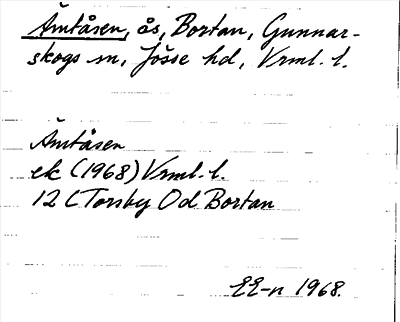 Ämtåsen, ås, Bortan, Gunnar-
skogs sn, Jösse hd, Vrml. l.
Ämtåsen
ek (1968) Vrml. l.
12 C Torsby Od Bortan
EE-n 1968.